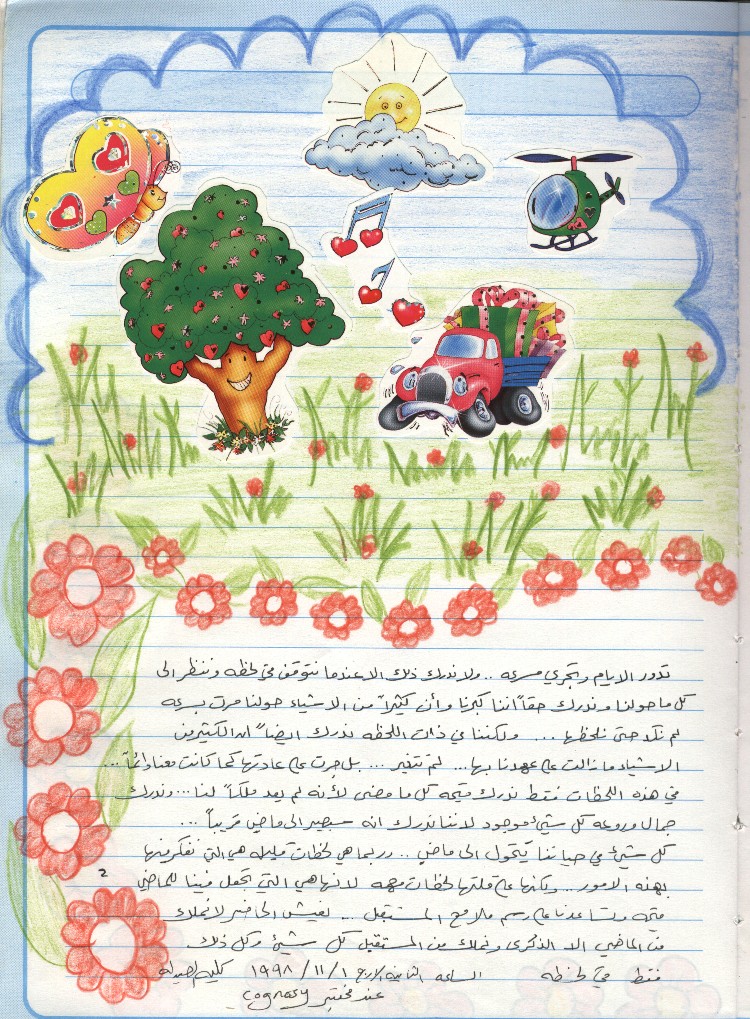 تدور الايام وتجري مسرعه .. ولا ندرك ذلك الا عندما نتوقف في لحظه وننظر الى
كل ما حولنا وندرك حقاً اننا كبرنا وأن كثيراً من الاشياء حولنا مرت بسرعه
لم نكد حتى نلحظها ... ولكننا في ذات اللحظه ندرك ايضاً ان الكثير من
الاشياء ما زالت على عهدنا بها... لم تتغير ... بل جرت على عادتها كما كانت معنا دائماً...
في هذه اللحظات فقط ندرك قيمة كل ما مضى لأنه لم يعد ملكاً لنا... وندرك
جمال وروعه كل شيئ موجود لاننا ندرك انه سيصير الى ماضي قريباً ...
كل شيئ في حياتنا يتحول الى ماضي .. ربما هي لحظات قليله هي التي نفكر فيها
بهذه الامور .. ولكنها على قلتها لحظات مهمه لانها هي التي تجعل فينا للماضي
2
قيمه وتساعدنا على رسم ملامح المستقبل .. نعيش الحاضر لا نملك
من الماضي الا الذكرى ونملك من المستقبل كل شيئ وكل ذلك
فقط في لحظه الساعه الثانيه الاربع ١٩٩٨/١١/١ كليه الصيدله
عند مختبر cognosy